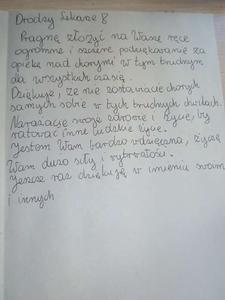 Drodzy Lekarze 8
Pragnę złożyć na Wasze ręce
ogromne i szczere podziękowanie za
opiekę nad chorymi w tym trudnym
da wszystkich czasie.
Dziękuję, że nie zostawiacie chorych
samych sobie w tych trudnych chwilach.
Narażacie swoje zdrowie i życie, by
ratować inne ludzkie życie.
Jestem Wam bardzo wdzięczna, życzę
Wam dużo siły i wytrwałości.
Jeszcze raz dziękuję w imieniu swoim
i innych